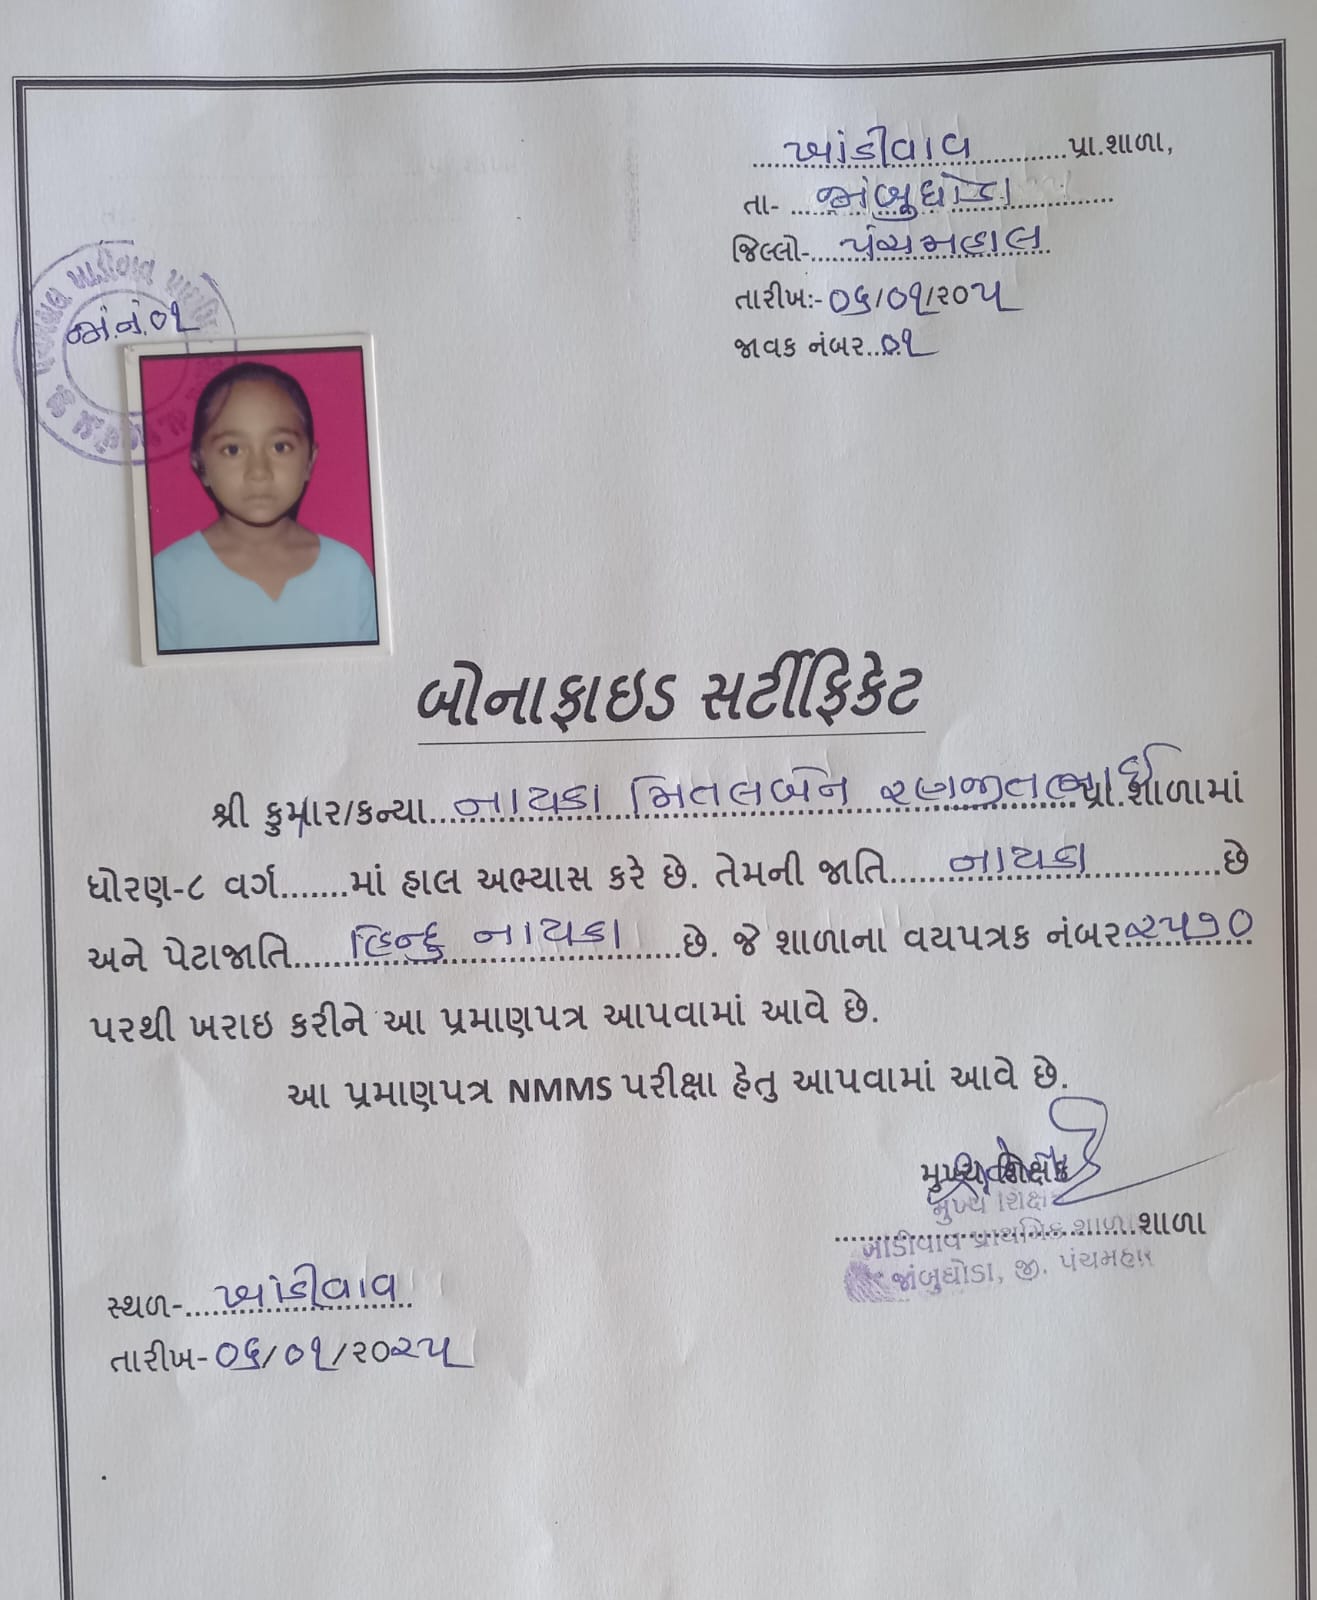 ખાંડીવાવ પ્રા.શાળા,
તા- જાંબુઘોડા
જિલ્લો- પંચમહાલ
તારીખ:- ૦૬/૦૧/૨૦૫
જાવક નંબર.. ૦૧
જા.નં.૦૧
બોનાફાઇડ સર્ટીફિકેટ
શ્રી કુમાર/કન્યા નાયકા મિતલબેન રણજીતભાઈ પ્રા.શાળામાં
ધોરણ-૮ વર્ગ.......માં હાલ અભ્યાસ કરે છે. તેમની જાતિ નાયકા છે
અને પેટાજાતિ હિન્દુ નાયકા છે. જે શાળાના વયપત્રક નંબર ૨૫૭૦
પરથી ખરાઇ કરીને આ પ્રમાણપત્ર આપવામાં આવે છે.
આ પ્રમાણપત્ર NMMS પરીક્ષા હેતુ આપવામાં આવે છે.
મુખ્ય શિક્ષક
મુખ્ય શિક્ષક
શાળા
ખાંડીવાવ પ્રાથમિક શાળા
જાંબુઘોડા, જી. પંચમહાલ
સ્થળ- ખાંડીવાવ
તારીખ- ૦૬/૦૧/૨૦૨૫